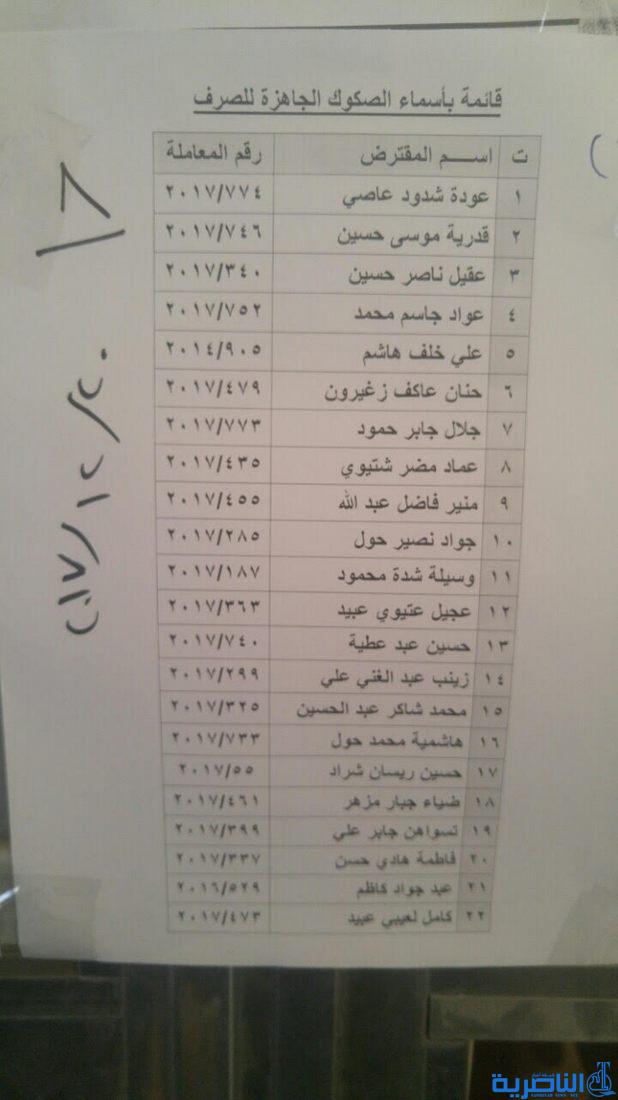 قائمة بأسماء الصكوك الجاهزة للصرف
ت اسم المقترض رقم المعاملة
١ عودة شدود عاصي ٢٠١٧/٧٧٤
٢ قدرية موسى حسين ٢٠١٧/٧٤٦
٣ عقيل ناصر حسين ٢٠١٧/٣٤٠
٤ عواد جاسم محمد ٢٠١٧/٧٥٢
٥ علي خلف هاشم ٢٠١٤/٩٠٥
٦ حنان عاكف زغيرون ٢٠١٧/٤٧٩
٧ جلال جابر حمود ٢٠١٧/٧٧٣
٨ عماد مضر شتيوي ٢٠١٧/٤٣٥
٩ منير فاضل عبد الله ٢٠١٧/٤٥٥
١٠ جواد نصير حول ٢٠١٧/٢٨٥
١١ وسيلة شدة محمود ٢٠١٧/١٨٧
١٢ عجيل عتيوي عبيد ٢٠١٧/٣٦٣
١٣ حسين عبد عطية ٢٠١٧/٧٤٠
١٤ زينب عبد الغني علي ٢٠١٧/٢٩٩
١٥ محمد شاكر عبد الحسين ٢٠١٧/٣٢٥
١٦ هاشمية محمد حول ٢٠١٧/٧٣٣
١٧ حسين ريسان شراد ٢٠١٧/٥٥
١٨ ضياء جبار مزهر ٢٠١٧/٤٦١
١٩ تسواهن جابر علي ٢٠١٧/٣٩٩
٢٠ فاطمة هادي حسن ٢٠١٧/٣٣٧
٢١ عبد جواد كاظم ٢٠١٦/٥٢٩
٢٢ كامل لعيبي عبيد ٢٠١٧/٤٧٣
٢٠١٧/١٢/٢٠
الناصرية